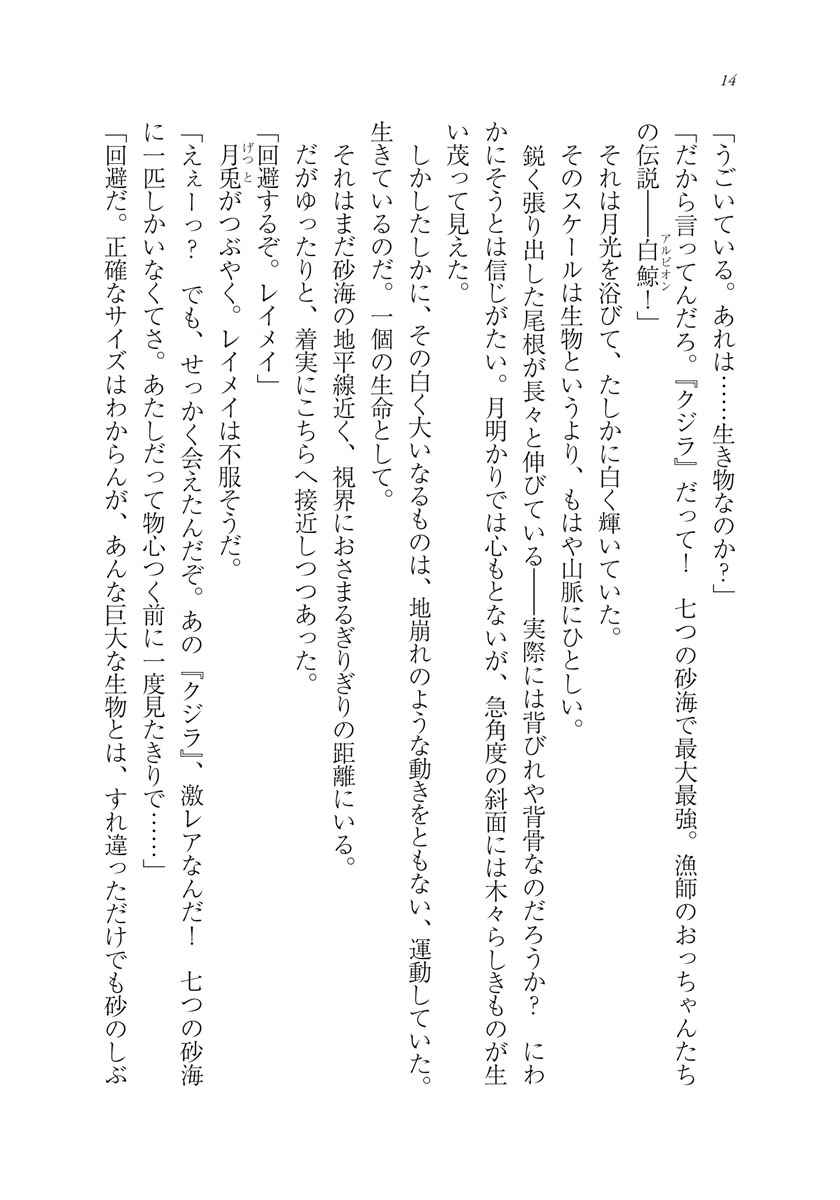 14
「うごいている。あれは……生き物なのか？」
「だから言ってんだろ。『クジラ』だって！　七つの砂海で最大最強。漁師のおっちゃんたち
の伝説――白鯨！」
アルビオン
それは月光を浴びて、たしかに白く輝いていた。
そのスケールは生物というより、もはや山脈にひとしい。
鋭く張り出した尾根が長々と伸びている――実際には背びれや背骨なのだろうか？　にわ
かにそうとは信じがたい。月明かりでは心もとないが、急角度の斜面には木々らしきものが生
い茂って見えた。
しかしたしかに、その白く大いなるものは、地崩れのような動きをともない、運動していた。
生きているのだ。一個の生命として。
それはまだ砂海の地平線近く、視界におさまるぎりぎりの距離にいる。
だがゆったりと、着実にこちらへ接近しつつあった。
「回避するぞ。レイメイ」
月兎がつぶやく。レイメイは不服そうだ。
げつと
「えぇーっ？　でも、せっかく会えたんだぞ。あの『クジラ』、激レアなんだ！　七つの砂海
に一匹しかいなくてさ。あたしだって物心つく前に一度見たきりで……」
「回避だ。正確なサイズはわからんが、あんな巨大な生物とは、すれ違っただけでも砂のしぶ